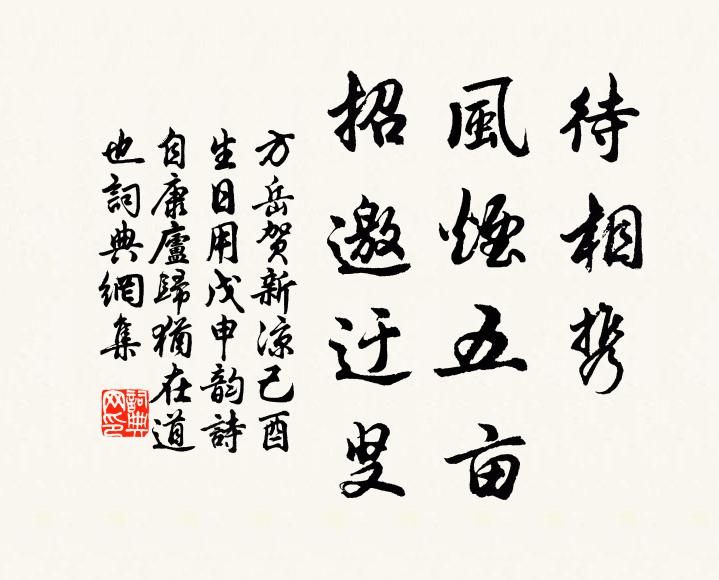 待相携
風煙五亩
招邀迂叟
方岳贺新凉己酉
生日用戊申韵詩
自康廬歸猶在道
也詞典網集
詞典網印